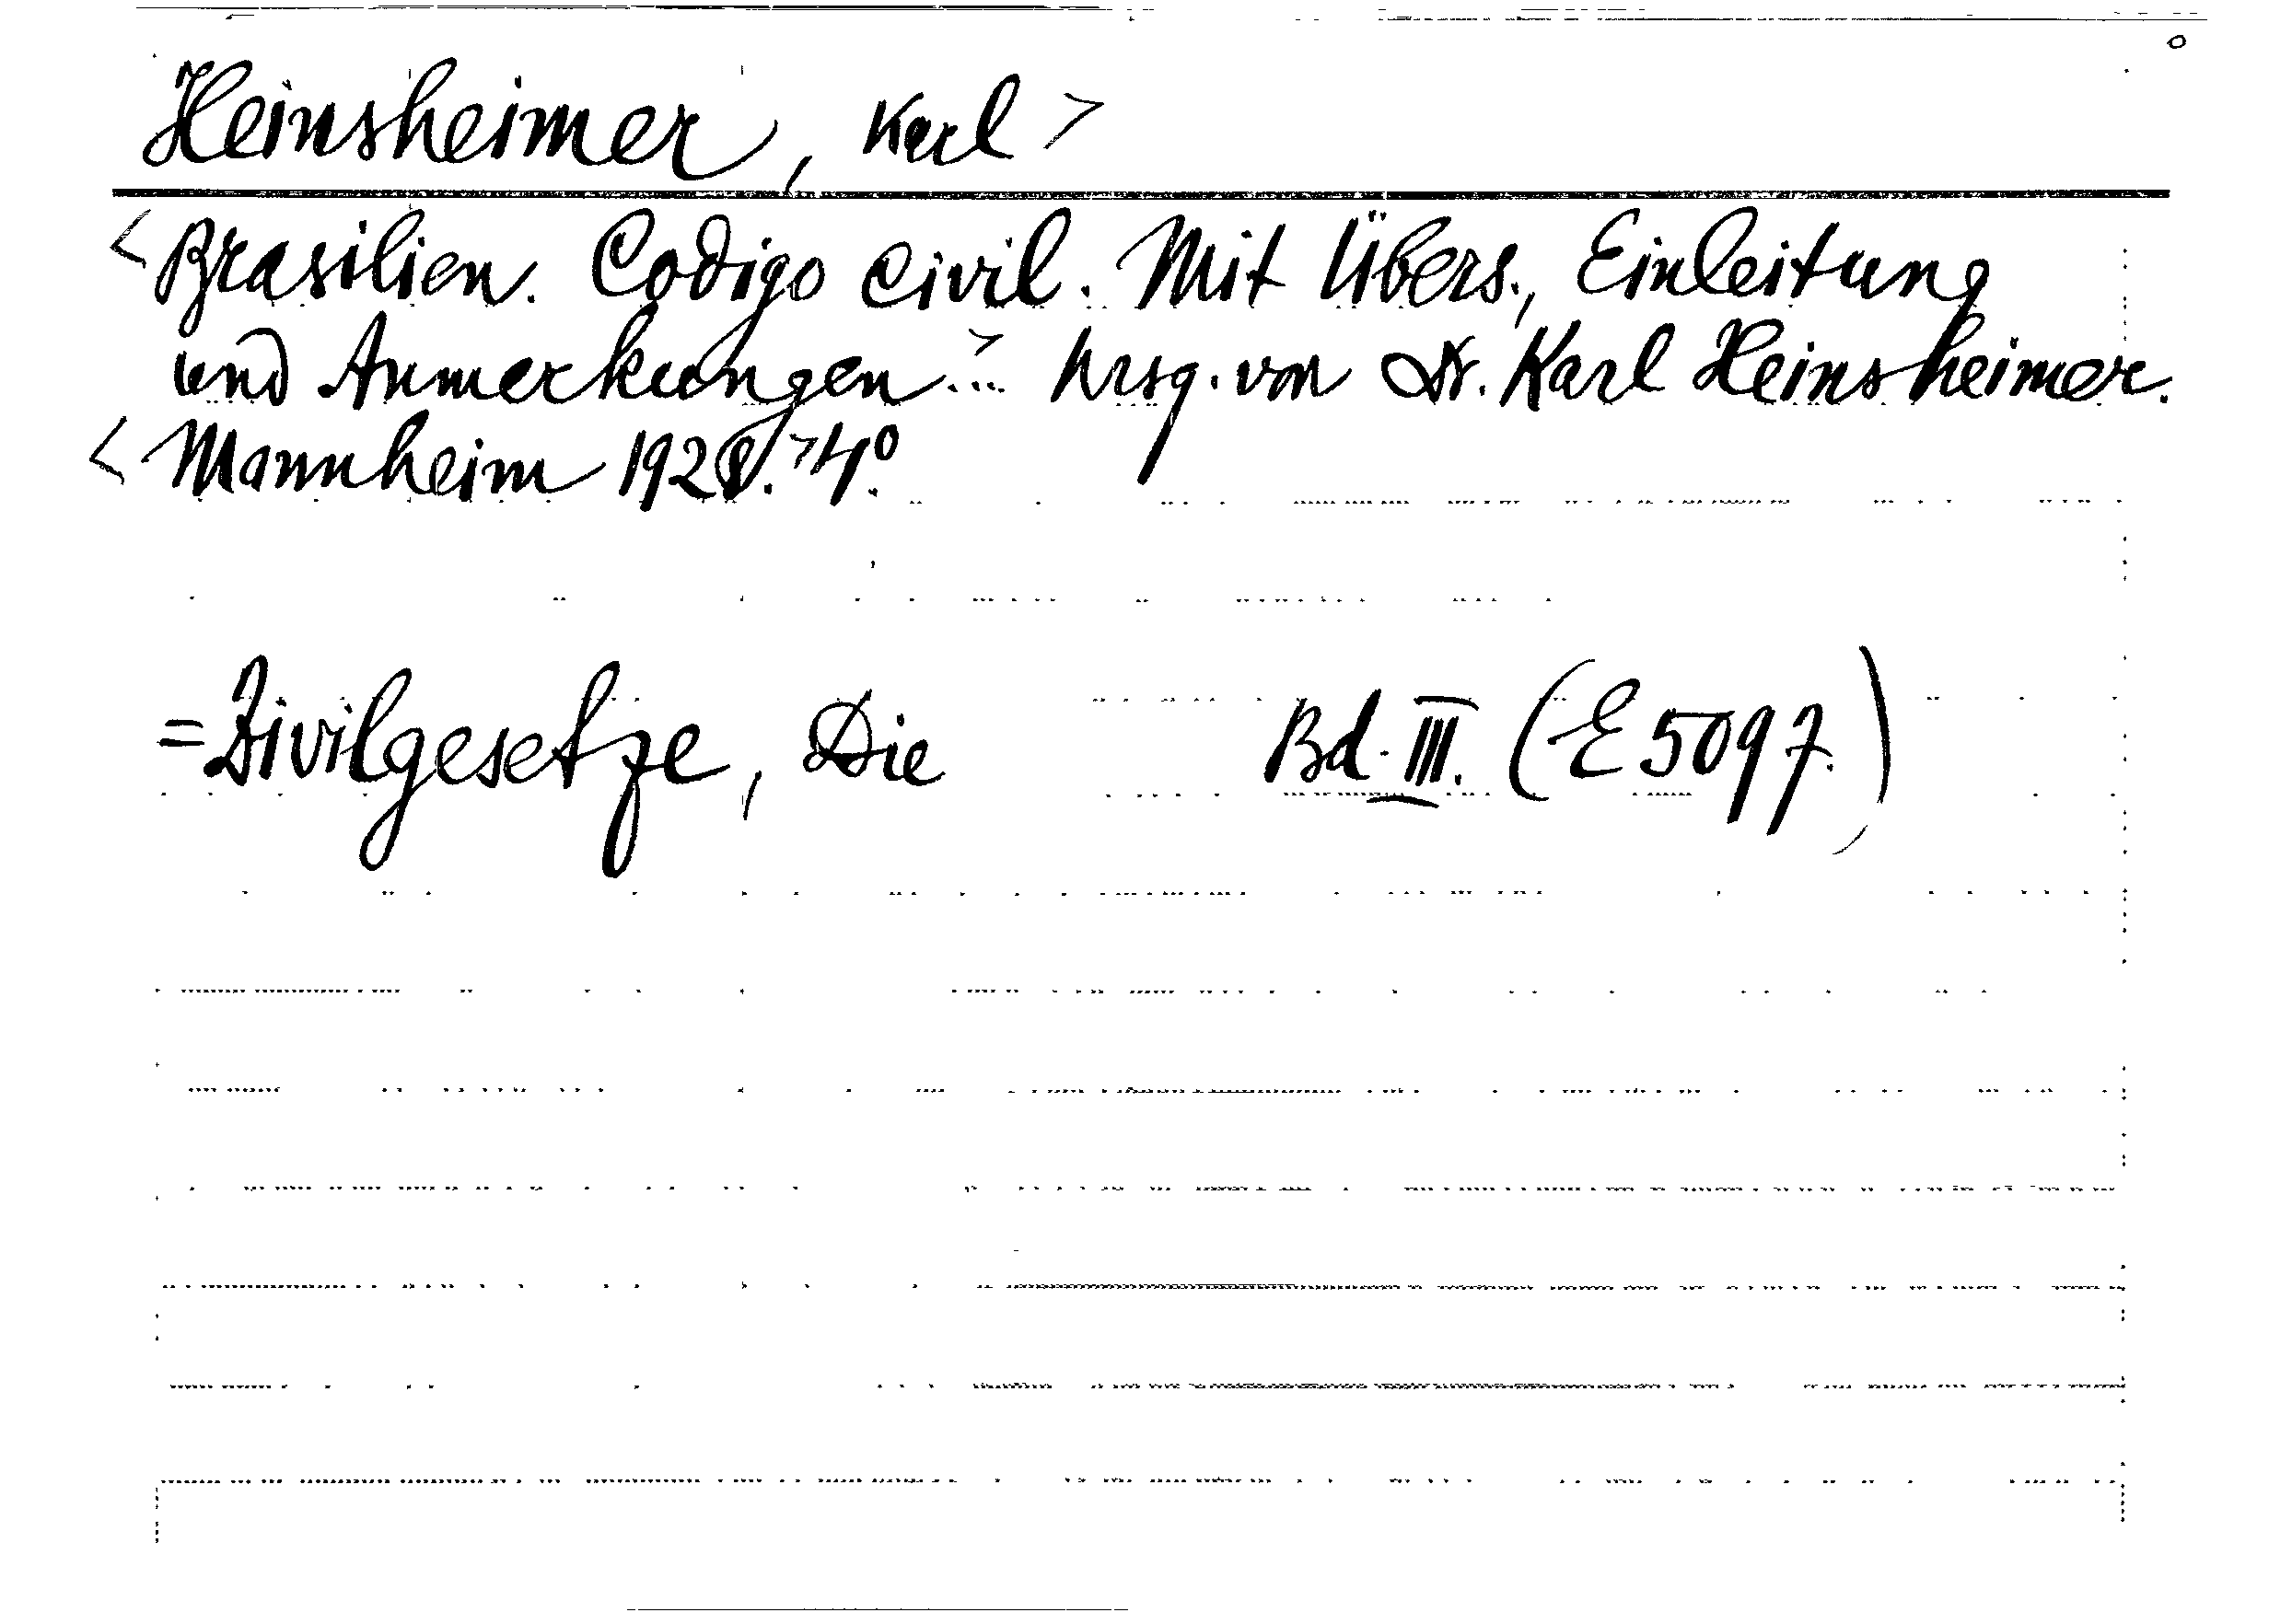 Heinsheimer, Karl >
< Brasilien. Codigo civil. Mit Übers., Einleitung
und Anmerkungen...> hrsg. von Dr. Karl Heinsheimer.
< Mannheim 1928.> 4°.
= Zivilgesetze, Die Bd. III. (E 5097.)